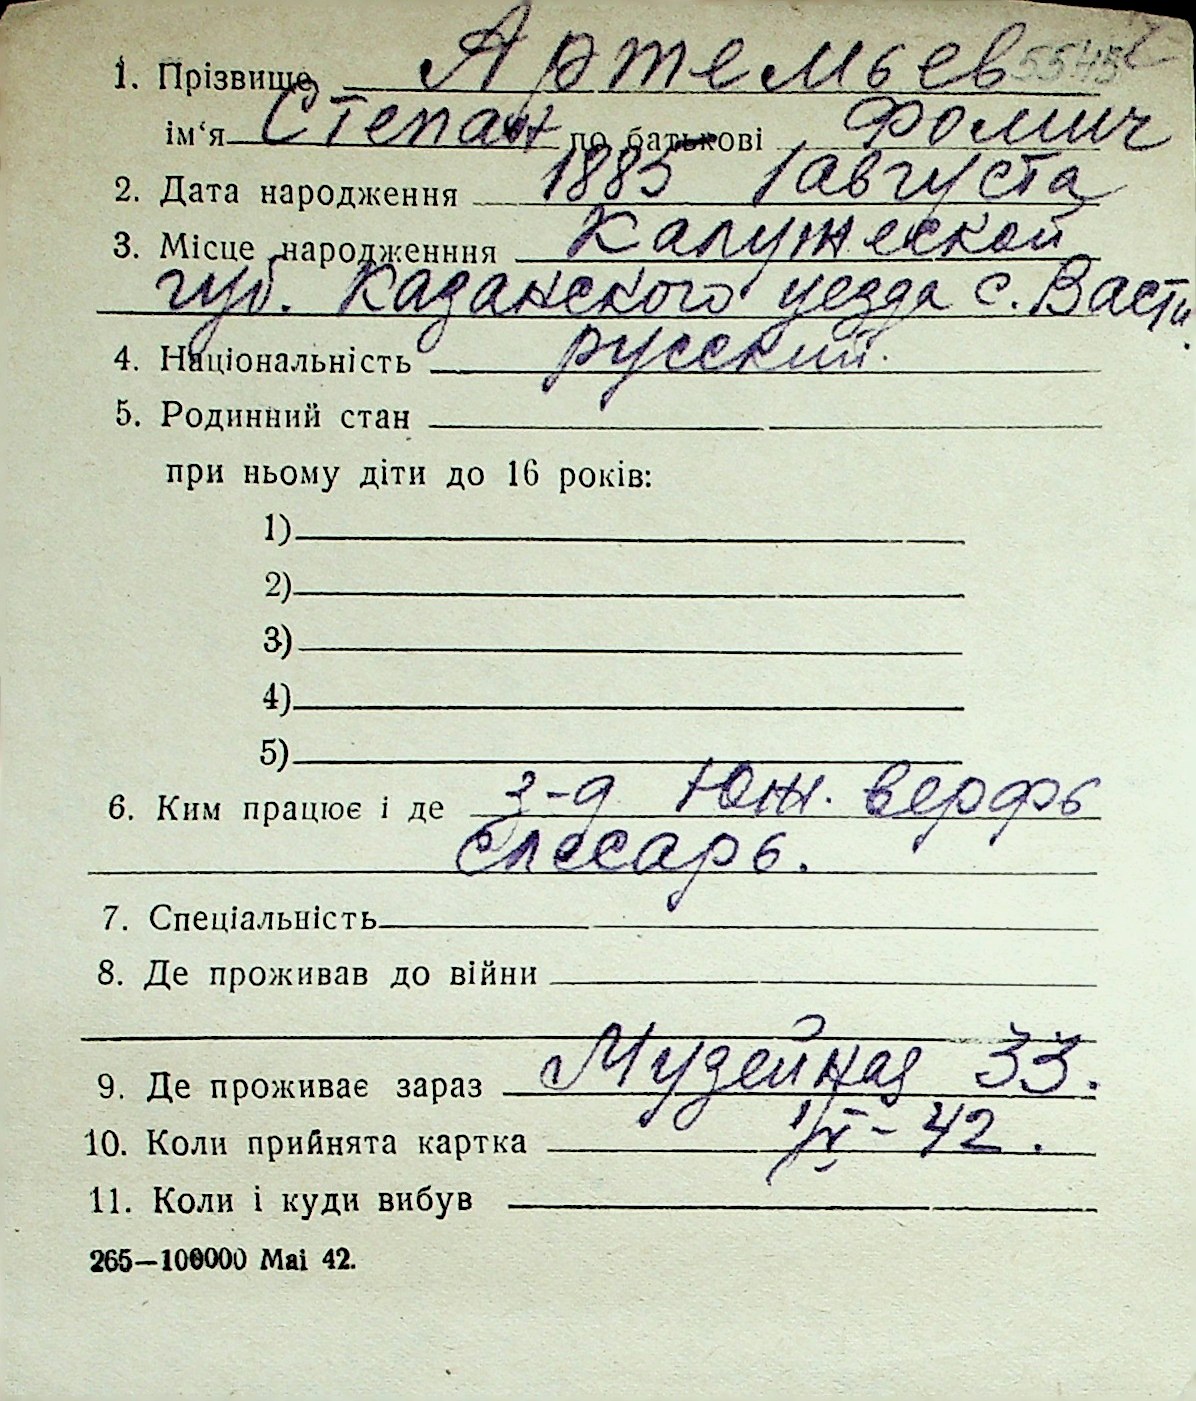 1. Прізвище Артемьев 5545
ім‘я Степан по батькові Фомич
2. Дата народження 1885 1 августа
3. Місце народженння Калужеской
губ. Казанского уезда с. Васти
4. Національність русский.
5. Родинний стан
при ньому діти до 16 років:
1)
2)
3)
4)
5)
6. Ким працює і де з-д Юж. верфь
слесарь.
7. Спеціальність
8. Де проживав до війни
9. Де проживає зараз Музейная 33.
10. Коли прийнята картка - 42.
11. Коли і куди вибув
265—100000 Mai 42.